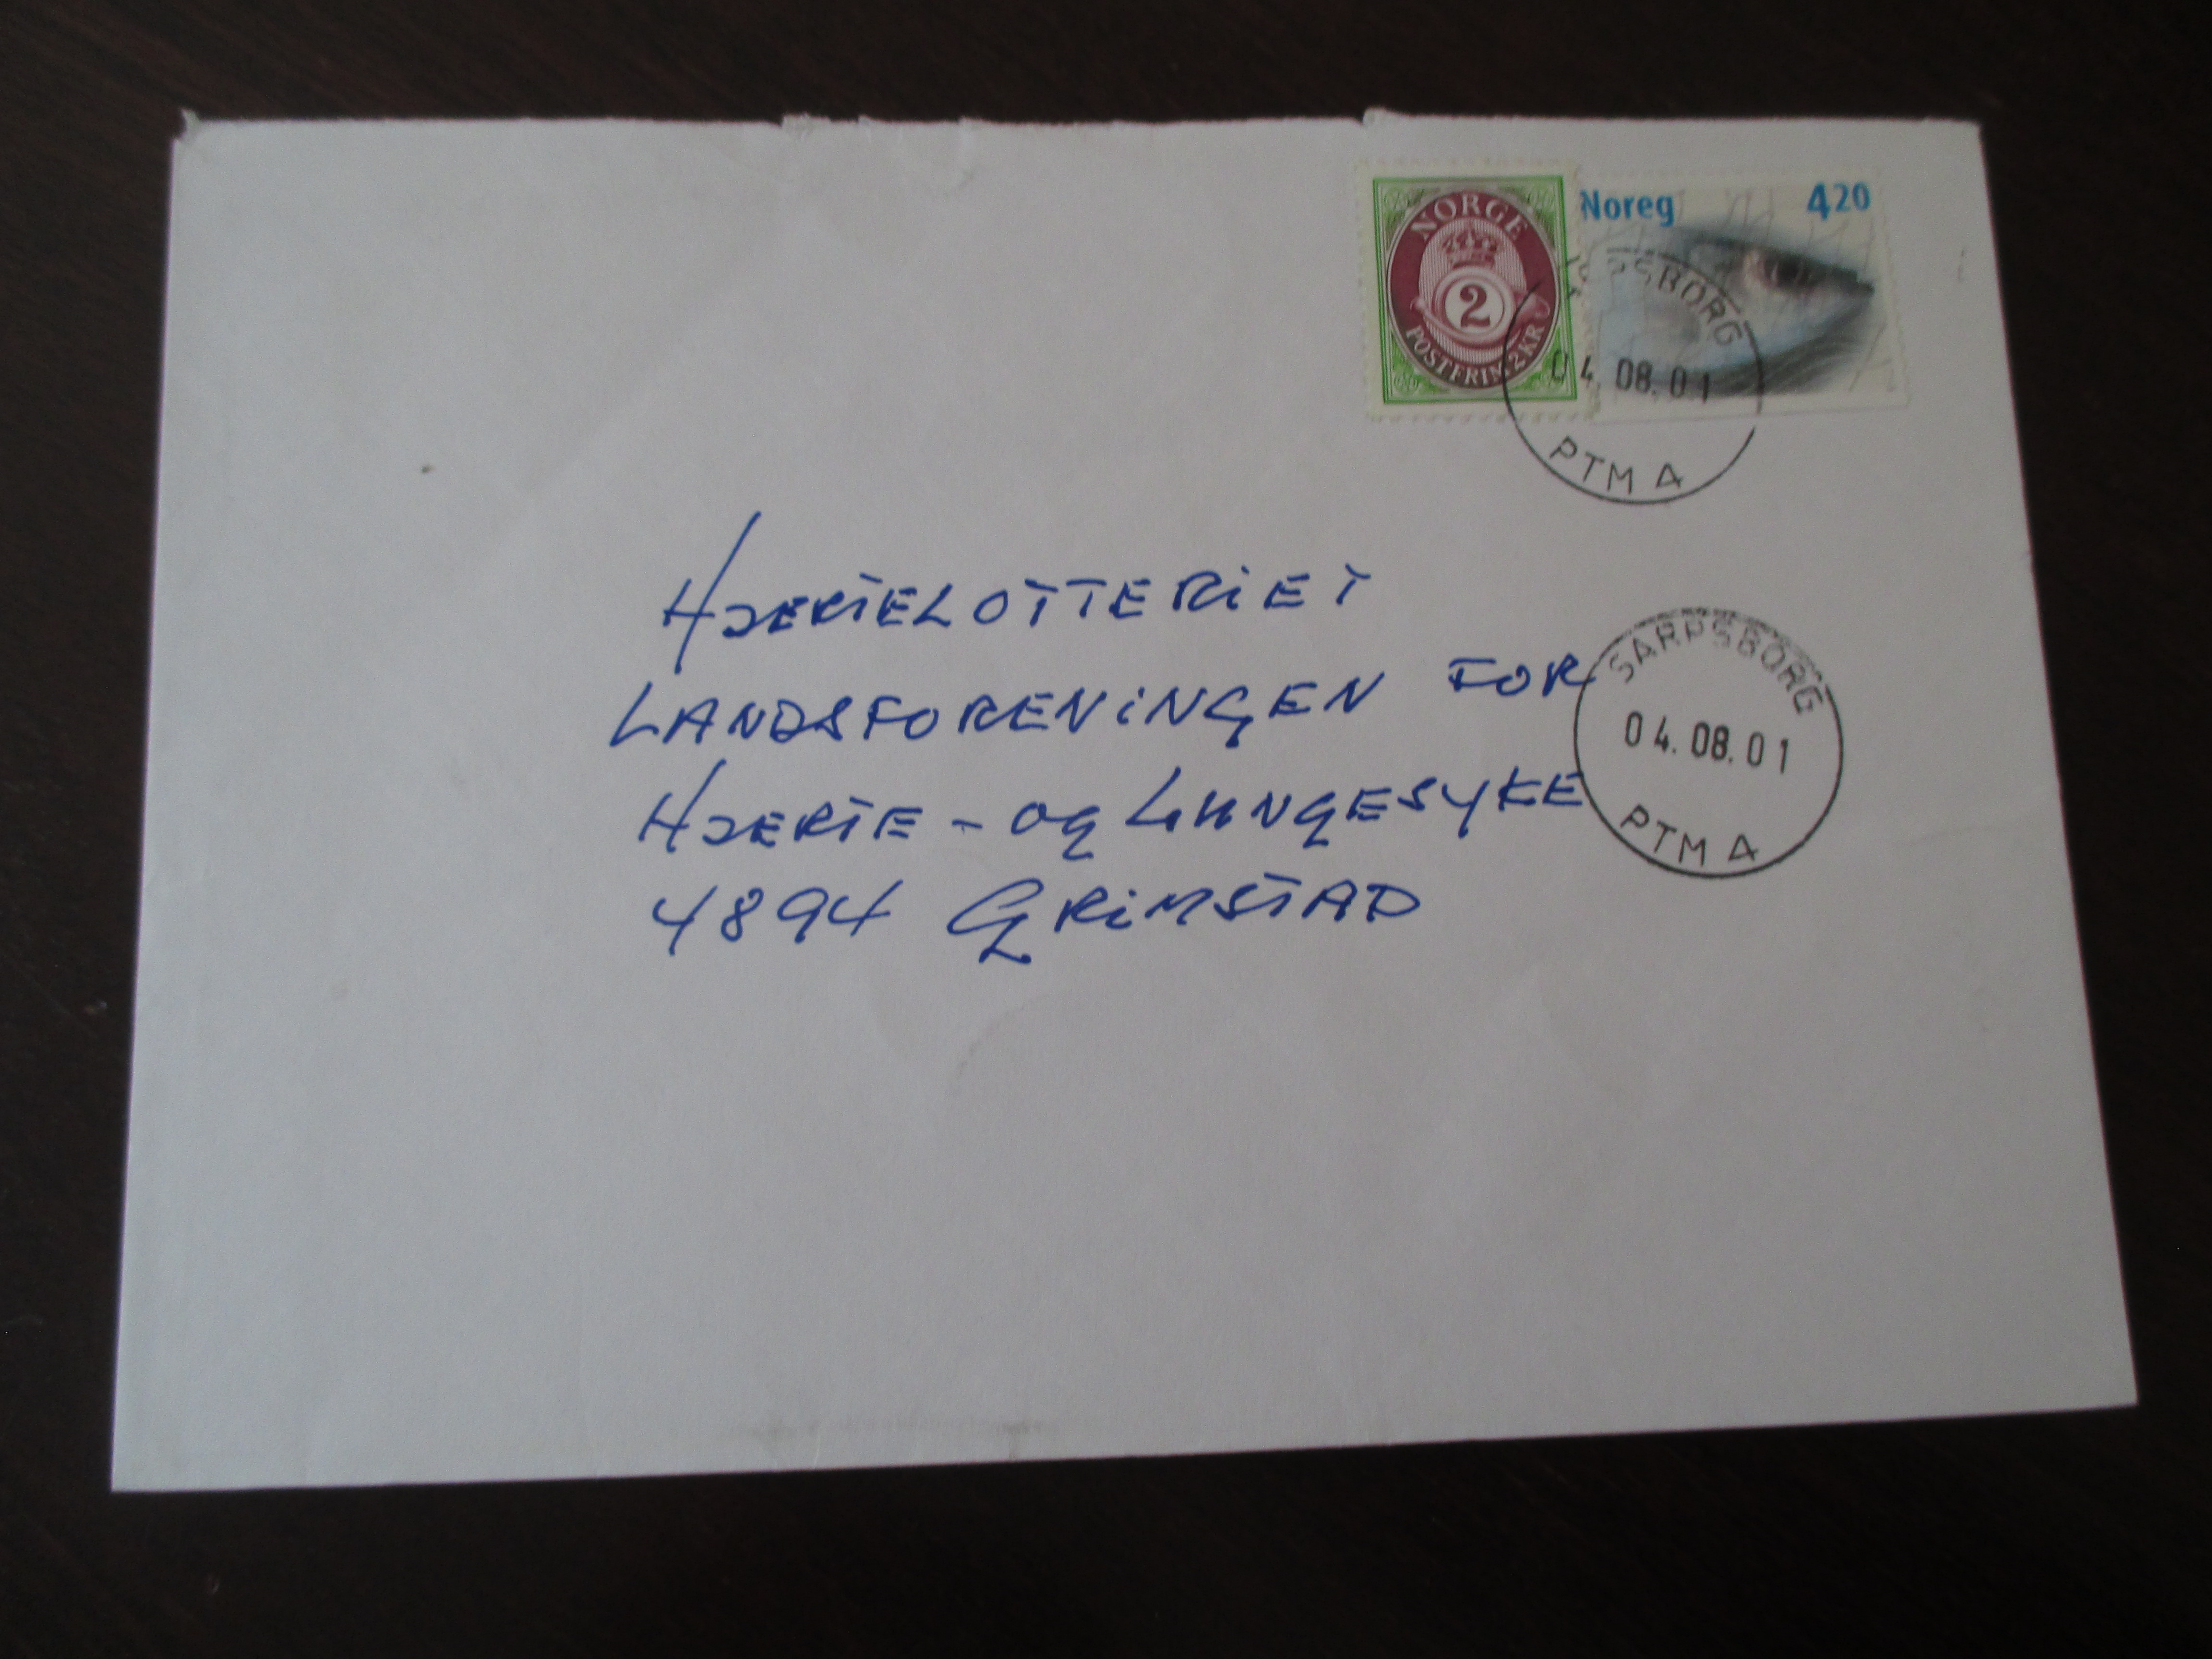 NORGE
2
POSTFRIM. 2 KR
Noreg 4 20
SARPSBORG
04.08.01
PTM 4
HJERTELOTTERIET
LANDSFORENINGEN FOR
HJERTE - OG LUNGESYKE
4894 GRIMSTAD
SARPSBORG
04.08.01
PTM 4